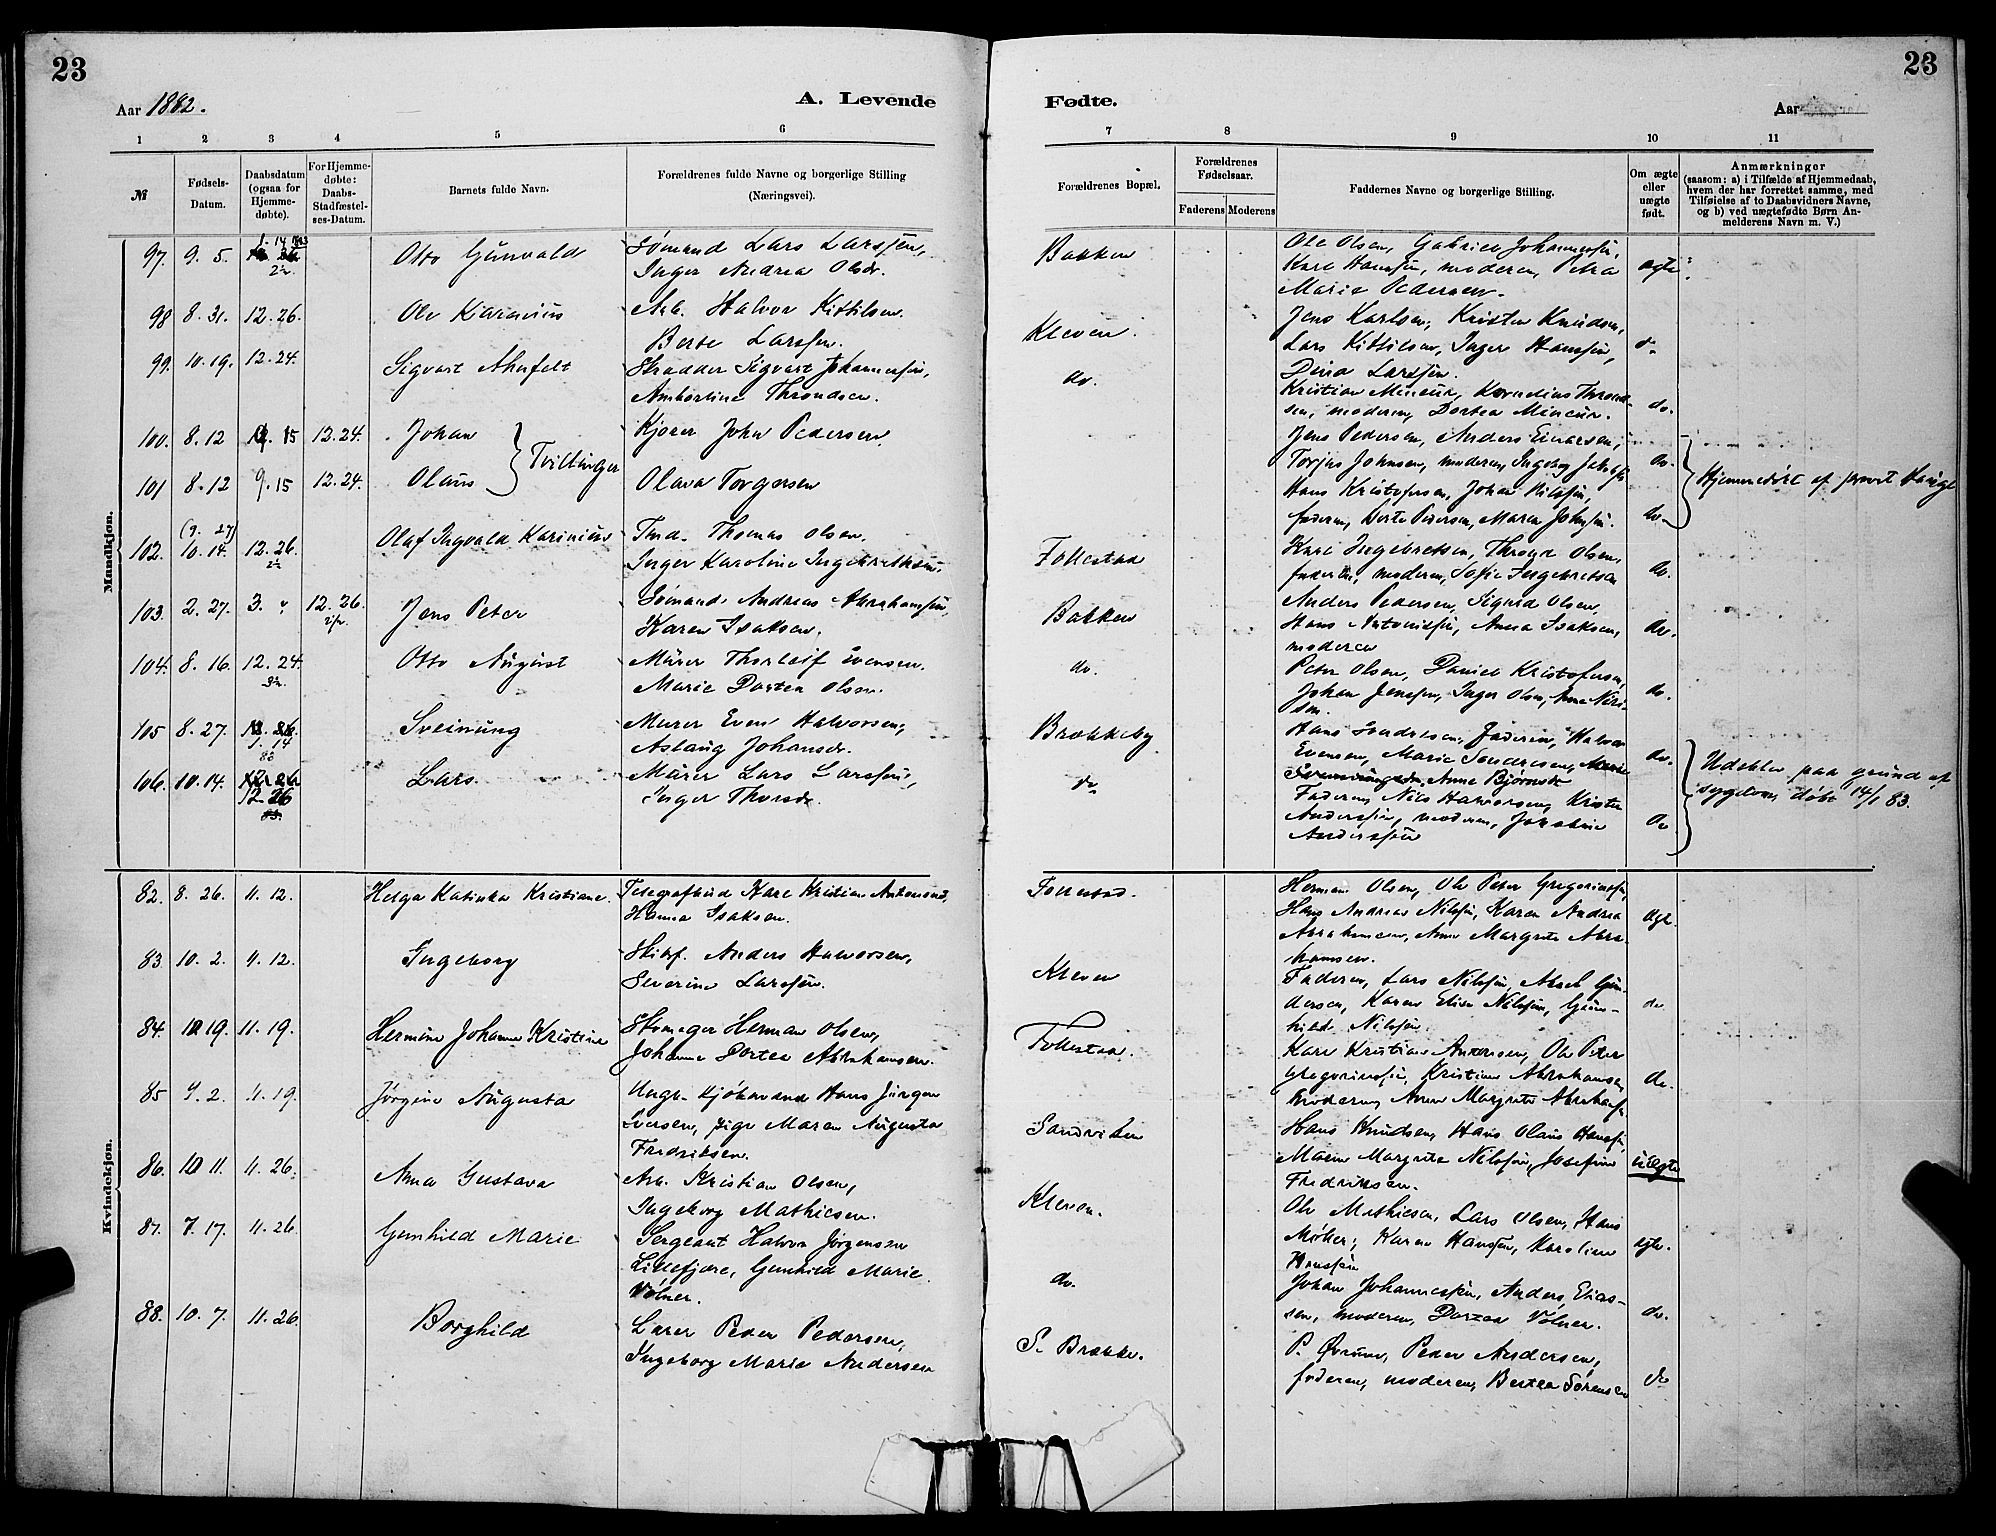 23
23
Aar 1882.
A. Levende
Fødte.
Aar
1 2 3 4 5 6 7 8 9 10 11
№
Fødsels-
Datum.
Daabsdatum
(ogsaa for
Hjemme-
døbte).
For Hjemme-
døbte:
Daabs-
Stadfæstel-
ses-Datum.
Barnets fulde Navn.
Forældrenes fulde Navne og borgerlige Stilling
(Næringsvei).
Forældrenes Bopæl.
Forældrenes
Fødselsaar.
Faderens Moderens
Faddernes Navne og borgerlige Stilling.
Om ægte
eller
uægte
født.
Anmærkninger
(saasom: a) i Tilfælde af Hjemmedaab,
hvem der har forrettet samme, med
Tilføielse af to Daabsvidners Navne,
og b) ved uægtefødte Børn An-
melderens Navn m. V.)
Mandkjøn.
97. 9. 5. 1. 14 Otto Gunvald Sømand Lars Larssen,
Inger Andrea Olsdr.
Bakken
Ole Olsen, Gabriel Johannessen,
Karl Hanssen, moderen, Petra
Marie Pedersen.
ægte
98 8. 31. 12. 26. Ole Karinius Arb. Halvor Kittilsen.
Berte Larssen.
Kleven.
Jens Karlsen, Kristen Knudsen,
Lars Kittilsen, Inger Hanssen,
Dina Larssen.
do
99. 10. 19. 12. 24. Sigvart Ahnfelt Skrædder Sigvart Johannessen,
Ambortine Throndsen.
do.
Kristian Mineur, Kornelius Thrond-
sen, moderen, Dortea Mineur.
do.
100. 8. 12 9. 15 12. 24. Johan Kjører John Pedersen
Tvillinger
Jens Pedersen, Anders Einarsen,
Torjus Johnsen, moderen, Ingeborg
do.
101 8. 12 9. 15 12. 24. Olaus Olava Torgersen
Hans Kristofersen, Johan Nilssen,
faderen, Berte Pedersen, Maren Johnsen.
do.
Hjemmedøbt af provst Hauge
102. (9. 27) 10. 14. 12. 26. Olaf Ingvald Karinius Tmd. Thomas Olsen,
Inger Karoline Ingebretsen.
Follestad
Karl Ingebretsen, Thrond Olsen,
faderen, moderen, Sofie Ingebretsen
do.
103. 2. 27. 3. 12. 26. Jens Peter Sømand Andreas Abrahamsen,
Karen Isaksen.
Bakken
Anders Pedersen, Sigurd Olsen,
Hans Antonissen, Anna Isaksen,
moderen
do.
104. 8. 16. 12. 24. Otto August Murer Thorleif Evensen.
Marie Dortea Olsen.
do.
Peter Olsen, Daniel Kristofersen,
Johan Jenssen, Inger Olsen, Anne Niel-
sen.
do.
105 8. 27. 1. 14 83 Sveinung Murer Even Halvorsen,
Aslaug Johansdr.
Brækkeby
Hans Sondresen, Faderen, Halvor
Evensen, Marie Sondresen,
Anne Bjørnsdr
do.
106. 10. 14. 12. 26 Lars. Murer Lars Larssen,
Inger Thorsdr.
do
Faderen, Nils Halvorsen, Kristen
Anderssen, moderen,
Anderssen
do
Udeblev paa grund af
sygdom, døbt 14/1 83.
Kvindekjøn.
82. 8. 26. 11. 12. Helga Katinka Kristiane. Telegrafbud Karl Kristian Antonsen,
Hanna Isaksen.
Follestad.
Herman Olsen, Ole Peter Gregoriussen,
Hans Andreas Nilssen, Karen Andrea
Abrahamsen, Anne Margrete Abra-
hamsen.
ægte
83. 10. 2. 11. 12. Ingeborg Skibsf. Anders Halvorsen,
Severine Larssen.
Kleven
Faderen, Lars Nilssen, Abel Gun-
dersen, Karen Elise Nilssen, Gun-
hild Nilssen.
do
84. 10 19. 11. 19. Hermine Johanne Kristine Skomager Herman Olsen,
Johanne Dortea Abrahamsen.
Follestad.
Karl Kristian Antonsen, Ole Peter
Gregoriussen, Kristian Abrahamsen
moderen, Anne Margrete Abrahams.
do.
85 9. 2. 11. 19. Jørgine Augusta Ungk. Sjømand Hans Jørgen
Iversen, pige Maren Augusta
Fredriksen.
Sandviken
Hans Knudsen, Hans Olaus Hanssen,
Maren Margrete Nilssen, Josefine
Fredriksen.
uægte
86. 10 11. 11. 26. Anna Gustava Arb. Kristian Olsen,
Ingeborg Mathiesen.
Kleven.
Ole Mathiesen, Lars Olsen, Hans
Møller, Karen Hanssen, Karoline
Hanssen
ægte.
87. 7. 17. 11. 26. Gunhild Marie Sergeant Halvor Jørgensen
Lillefjære, Gunhild Marie
Vølner.
do.
Johan Johannessen, Anders Elias-
sen, moderen, Dortea Vølner.
do.
88. 10. 7. 11. 26. Borghild Lærer Peder Pedersen,
Ingeborg Marie Andersen
S. Brække.
P. Øvrum, Peder Andersen,
faderen, moderen, Bertea Sørensen
do